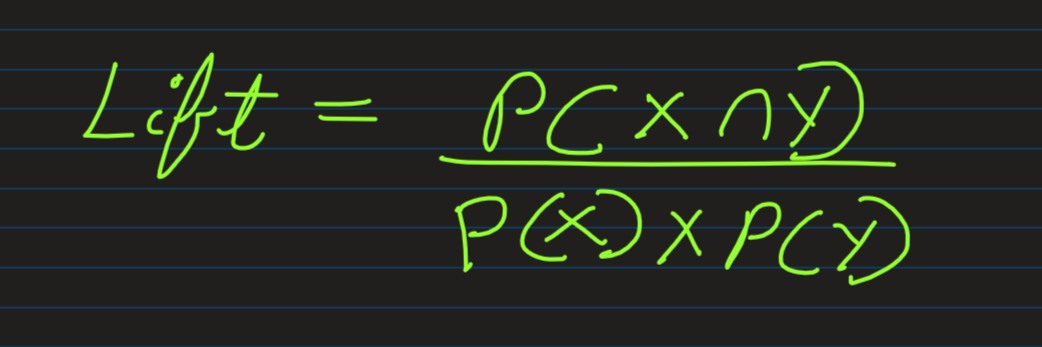 Lift = P(X ∩ Y)
P(X) × P(Y)